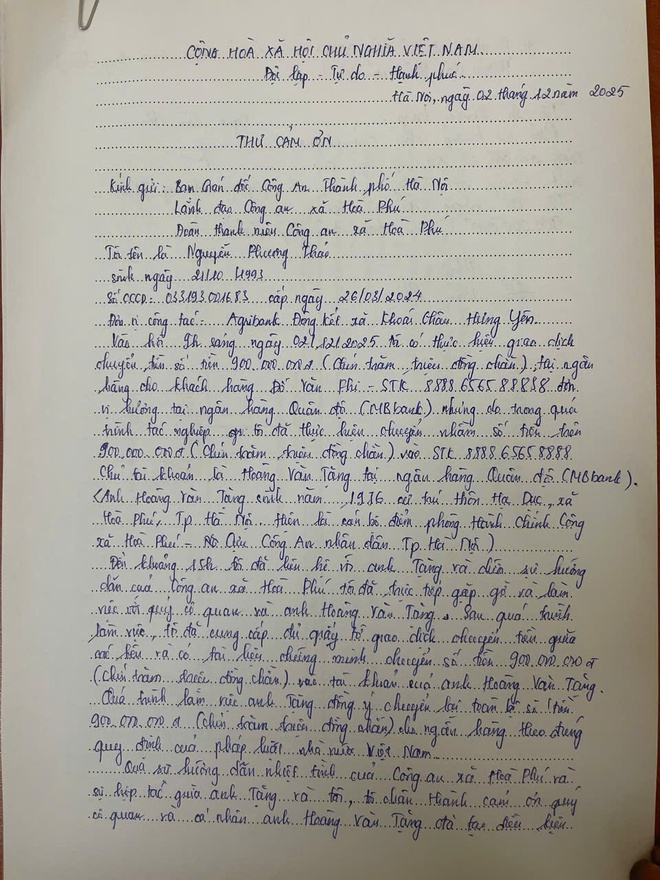 CỘNG HOÀ XÃ HỘI CHỦ NGHĨA VIỆT NAM
Độc lập - Tự do - Hạnh phúc
Hà Nội, ngày 02 tháng 12 năm 2025
THƯ CẢM ƠN
Kính gửi: Ban Giám đốc Công An Thành phố Hà Nội
Lãnh đạo Công an xã Hoà Phú
Đoàn thanh niên Công an xã Hoà Phú
Tôi tên là Nguyễn Phương Thảo
sinh ngày 21/10/1993
Số CCCD: 033193001683 cấp ngày 26/03/2024
Đơn vị công tác: Agribank Đông Kết xã Khoái Châu Hưng Yên.
Vào hồi 9h sáng ngày 02/12/2025 tôi có thực hiện giao dịch
chuyển tiền số tiền 900.000.000đ (Chín trăm triệu đồng chẵn) tại ngân
hàng cho khách hàng Đỗ Văn Phi - STK 8888.6565.88888 đơn
vị hưởng tại ngân hàng Quân đội (MBbank) nhưng do trong quá
trình tác nghiệp tôi đã thực hiện chuyển nhầm số tiền trên
900.000.000đ (Chín trăm triệu đồng chẵn) vào STK 8888.6565.8888
Chủ tài khoản là Hoàng Văn Tặng tại ngân hàng Quân đội (MBbank).
(Anh Hoàng Văn Tặng sinh năm 1976 cư trú thôn Hạ Dục, xã
Hoà Phú, Tp. Hà Nội. Hiện là cán bộ điểm phòng Hành chính Công
xã Hoà Phú - Công An nhân dân Tp Hà Nội)
Đến khoảng 15h tôi đã liên hệ với anh Tặng và được sự hướng
dẫn của Công an xã Hoà Phú tôi đã trực tiếp gặp gỡ và làm
việc với quý cơ quan và anh Hoàng Văn Tặng. Sau quá trình
làm việc, tôi đã cung cấp đủ giấy tờ giao dịch chuyển tiền giữa
các bên và có tài liệu chứng minh chuyển số tiền 900.000.000đ
(Chín trăm triệu đồng chẵn) vào tài khoản của anh Hoàng Văn Tặng.
Quá trình làm việc anh Tặng đồng ý chuyển lại toàn bộ số tiền
900.000.000đ (Chín trăm triệu đồng chẵn) cho ngân hàng theo đúng
quy định của pháp luật nhà nước Việt Nam.
Qua sự hướng dẫn nhiệt tình của Công an xã Hoà Phú và
sự hợp tác giữa anh Tặng và tôi, tôi chân thành cảm ơn quý
cơ quan và cá nhân anh Hoàng Văn Tặng đã tạo điều kiện